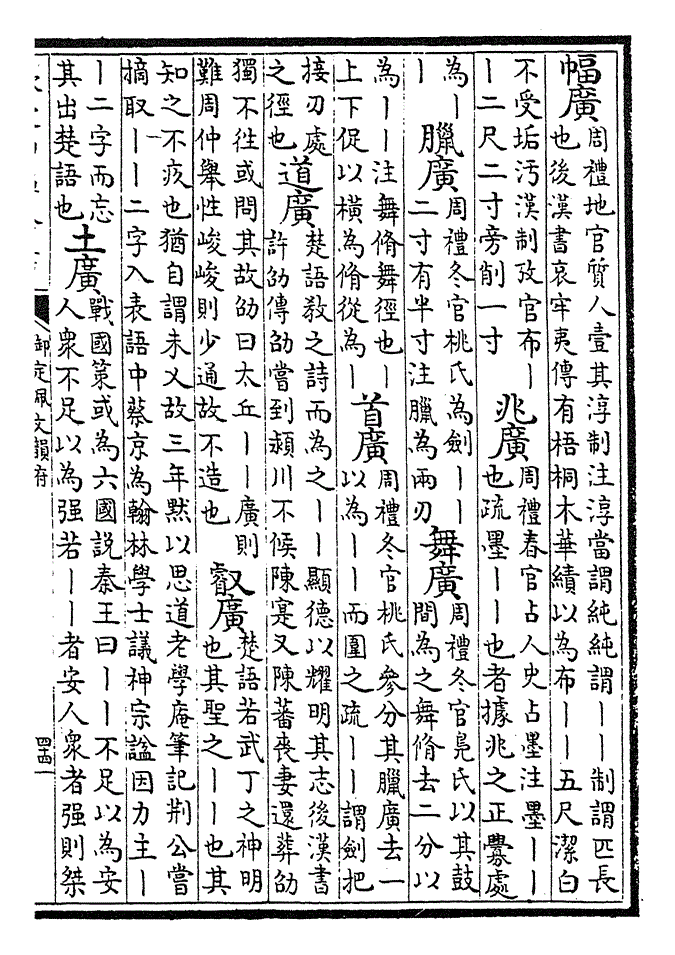 幅廣周禮地官質人壹其淳制注淳當謂純純謂丨丨制謂匹長也後漢書哀牢夷傳有梧桐木華績以為布丨丨五尺潔白
不受垢汚漢制攷官布丨丨二尺二寸旁削一寸兆廣周禮春官占人史占墨注墨丨丨也疏墨丨丨也者據兆之正舋處
為丨丨臘廣周禮冬官桃氏為劍丨丨二寸有半寸注臘為兩刃舞廣周禮冬官鳬氏以其鼓間為之舞脩去二分以
為丨丨注舞脩舞徑也丨上下促以橫為脩從為丨首廣周禮冬官桃氏參分其臘廣去一以為丨丨而圍之疏丨丨謂劍把
接刃處之徑也道廣楚語教之詩而為之丨丨顯德以耀明其志後漢書許劭傳劭嘗到潁川不候陳寔又陳蕃喪妻還葬劭
獨不徃或問其故劭曰太丘丨丨廣則難周仲舉性峻峻則少通故不造也叡廣楚語若武丁之神明也其聖之丨丨也其
知之不疚也猶自謂未乂故三年黙以思道老學庵筆記荆公嘗摘取丨丨二字入表語中蔡京為翰林學士議神宗謚因力主丨
丨二字而忘其出楚語也土廣戰國策或為六國説秦王曰丨丨不足以為安人衆不足以為强若丨丨者安人衆者强則桀
御定佩文韻府